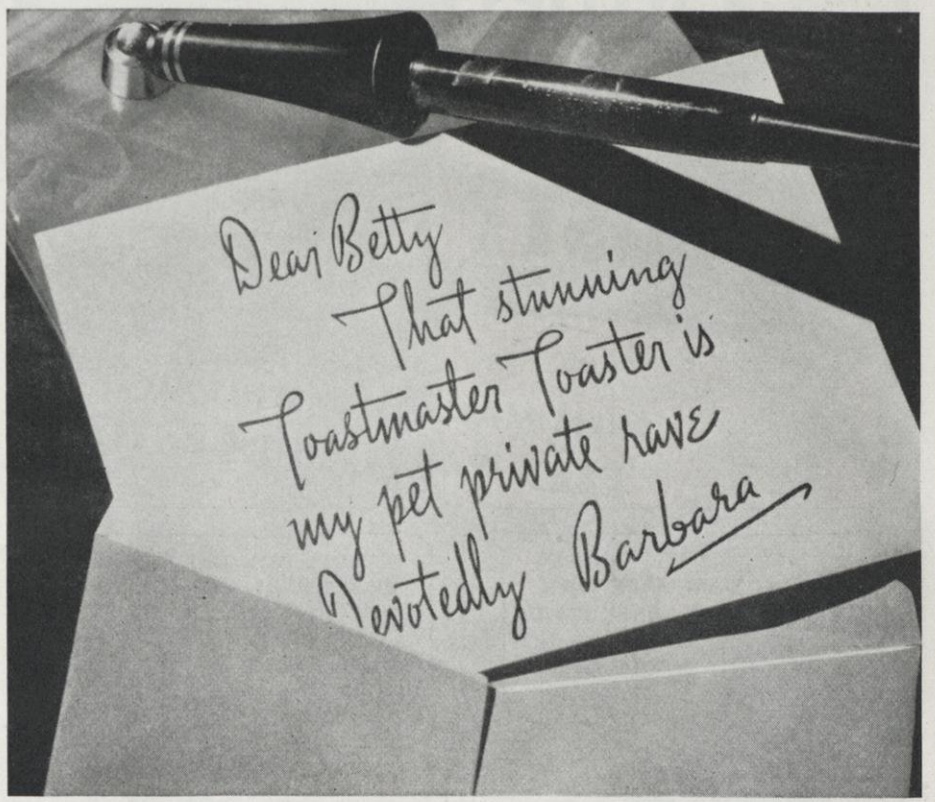 Dear Betty
That stunning
Toastmaster Toaster is
my pet private rave
Devotedly Barbara